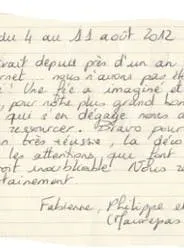 du 4 au 11 août 2012
vait depuis près d'un an
rnet... nous n'avons pas ét
! Une fée a imaginé et
, pour notre plus grand bon
qui s'en dégage nous a
ressourcer. Bravo pour
n très réussie, la déco
les attentions, que font
oit inoubliable. Nous r
tainement.
Fabienne, Philippe et
(Maurepas